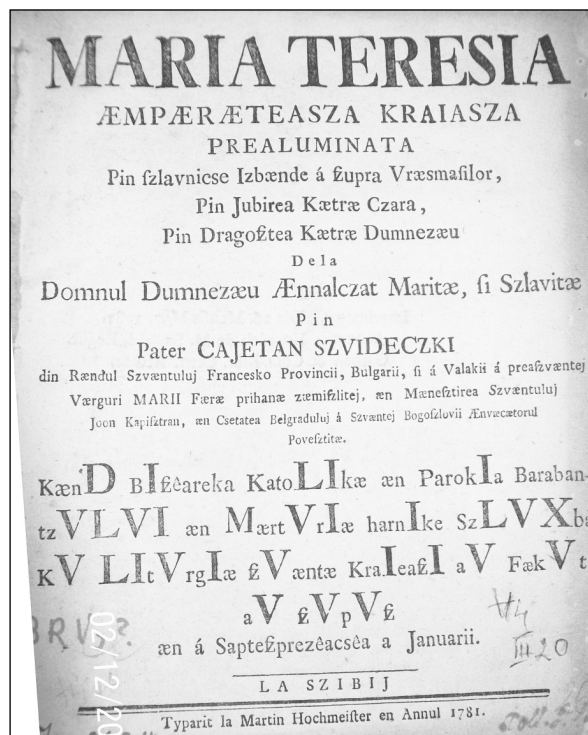 MARIA TERESIA
ÆMPÆRÆTEASZA KRAIASZA
PREALUMINATA
Pin ſzlavnicse Izbænde á ſzupra Vræsmaſilor,
Pin Jubirea Kætræ Czara,
Pin Dragoſztea Kætræ Dumnezæu
Dela
Domnul Dumnezæu Ænnalczat Maritæ, ſi Szlavitæ
Pin
Pater CAJETAN SZVIDECZKI
din Rændul Szvæntuluj Francesko Provincii, Bulgarii, ſi á Valakii á preaſzvæntej
Værguri MARII Færæ prihanæ zæmiſzlitej, æn Mæneſztirea Szvæntuluj
Joon Kapiſztran, æn Csetatea Belgraduluj á Szvæntej Bogoſzlovii Ænvæcætorul
Poveſztitæ.
KænD BIſzêareka KatoLIkæ æn ParokIa Baraban-
tzVLVI æn MærtVrIæ harnIke SzLVXba
KV LItVrgIæ ſzVæntæ KraIeaſzI aV FækVt
aV ſzVpVſz
æn á Sapteſzprezêacsêa a Januarii.
LA SZIBIJ
Typarit la Martin Hochmeiſter en Annul 1781.
BRV
III 20
02/12/20